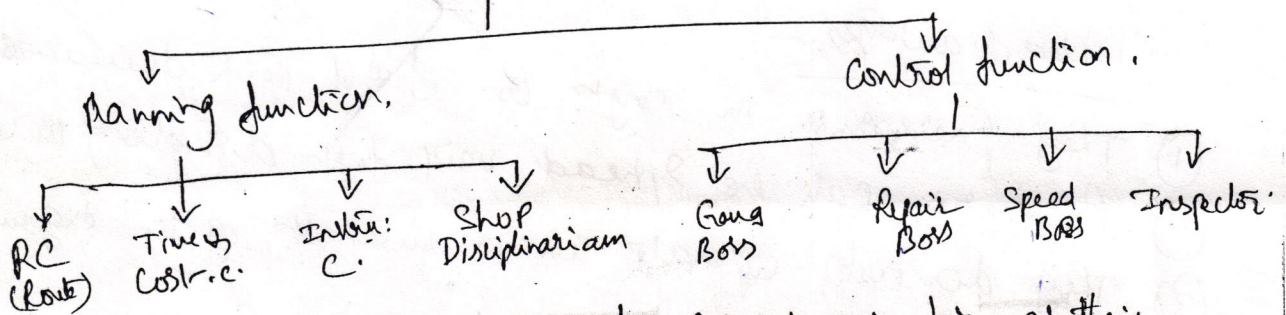 Planning function.
Control function.
RC
(Route)
Time &
Cost. C.
Instru:
C.
Shop
Disciplinariam
Gang
Boss
Repair
Boss
Speed
Boss
Inspector.